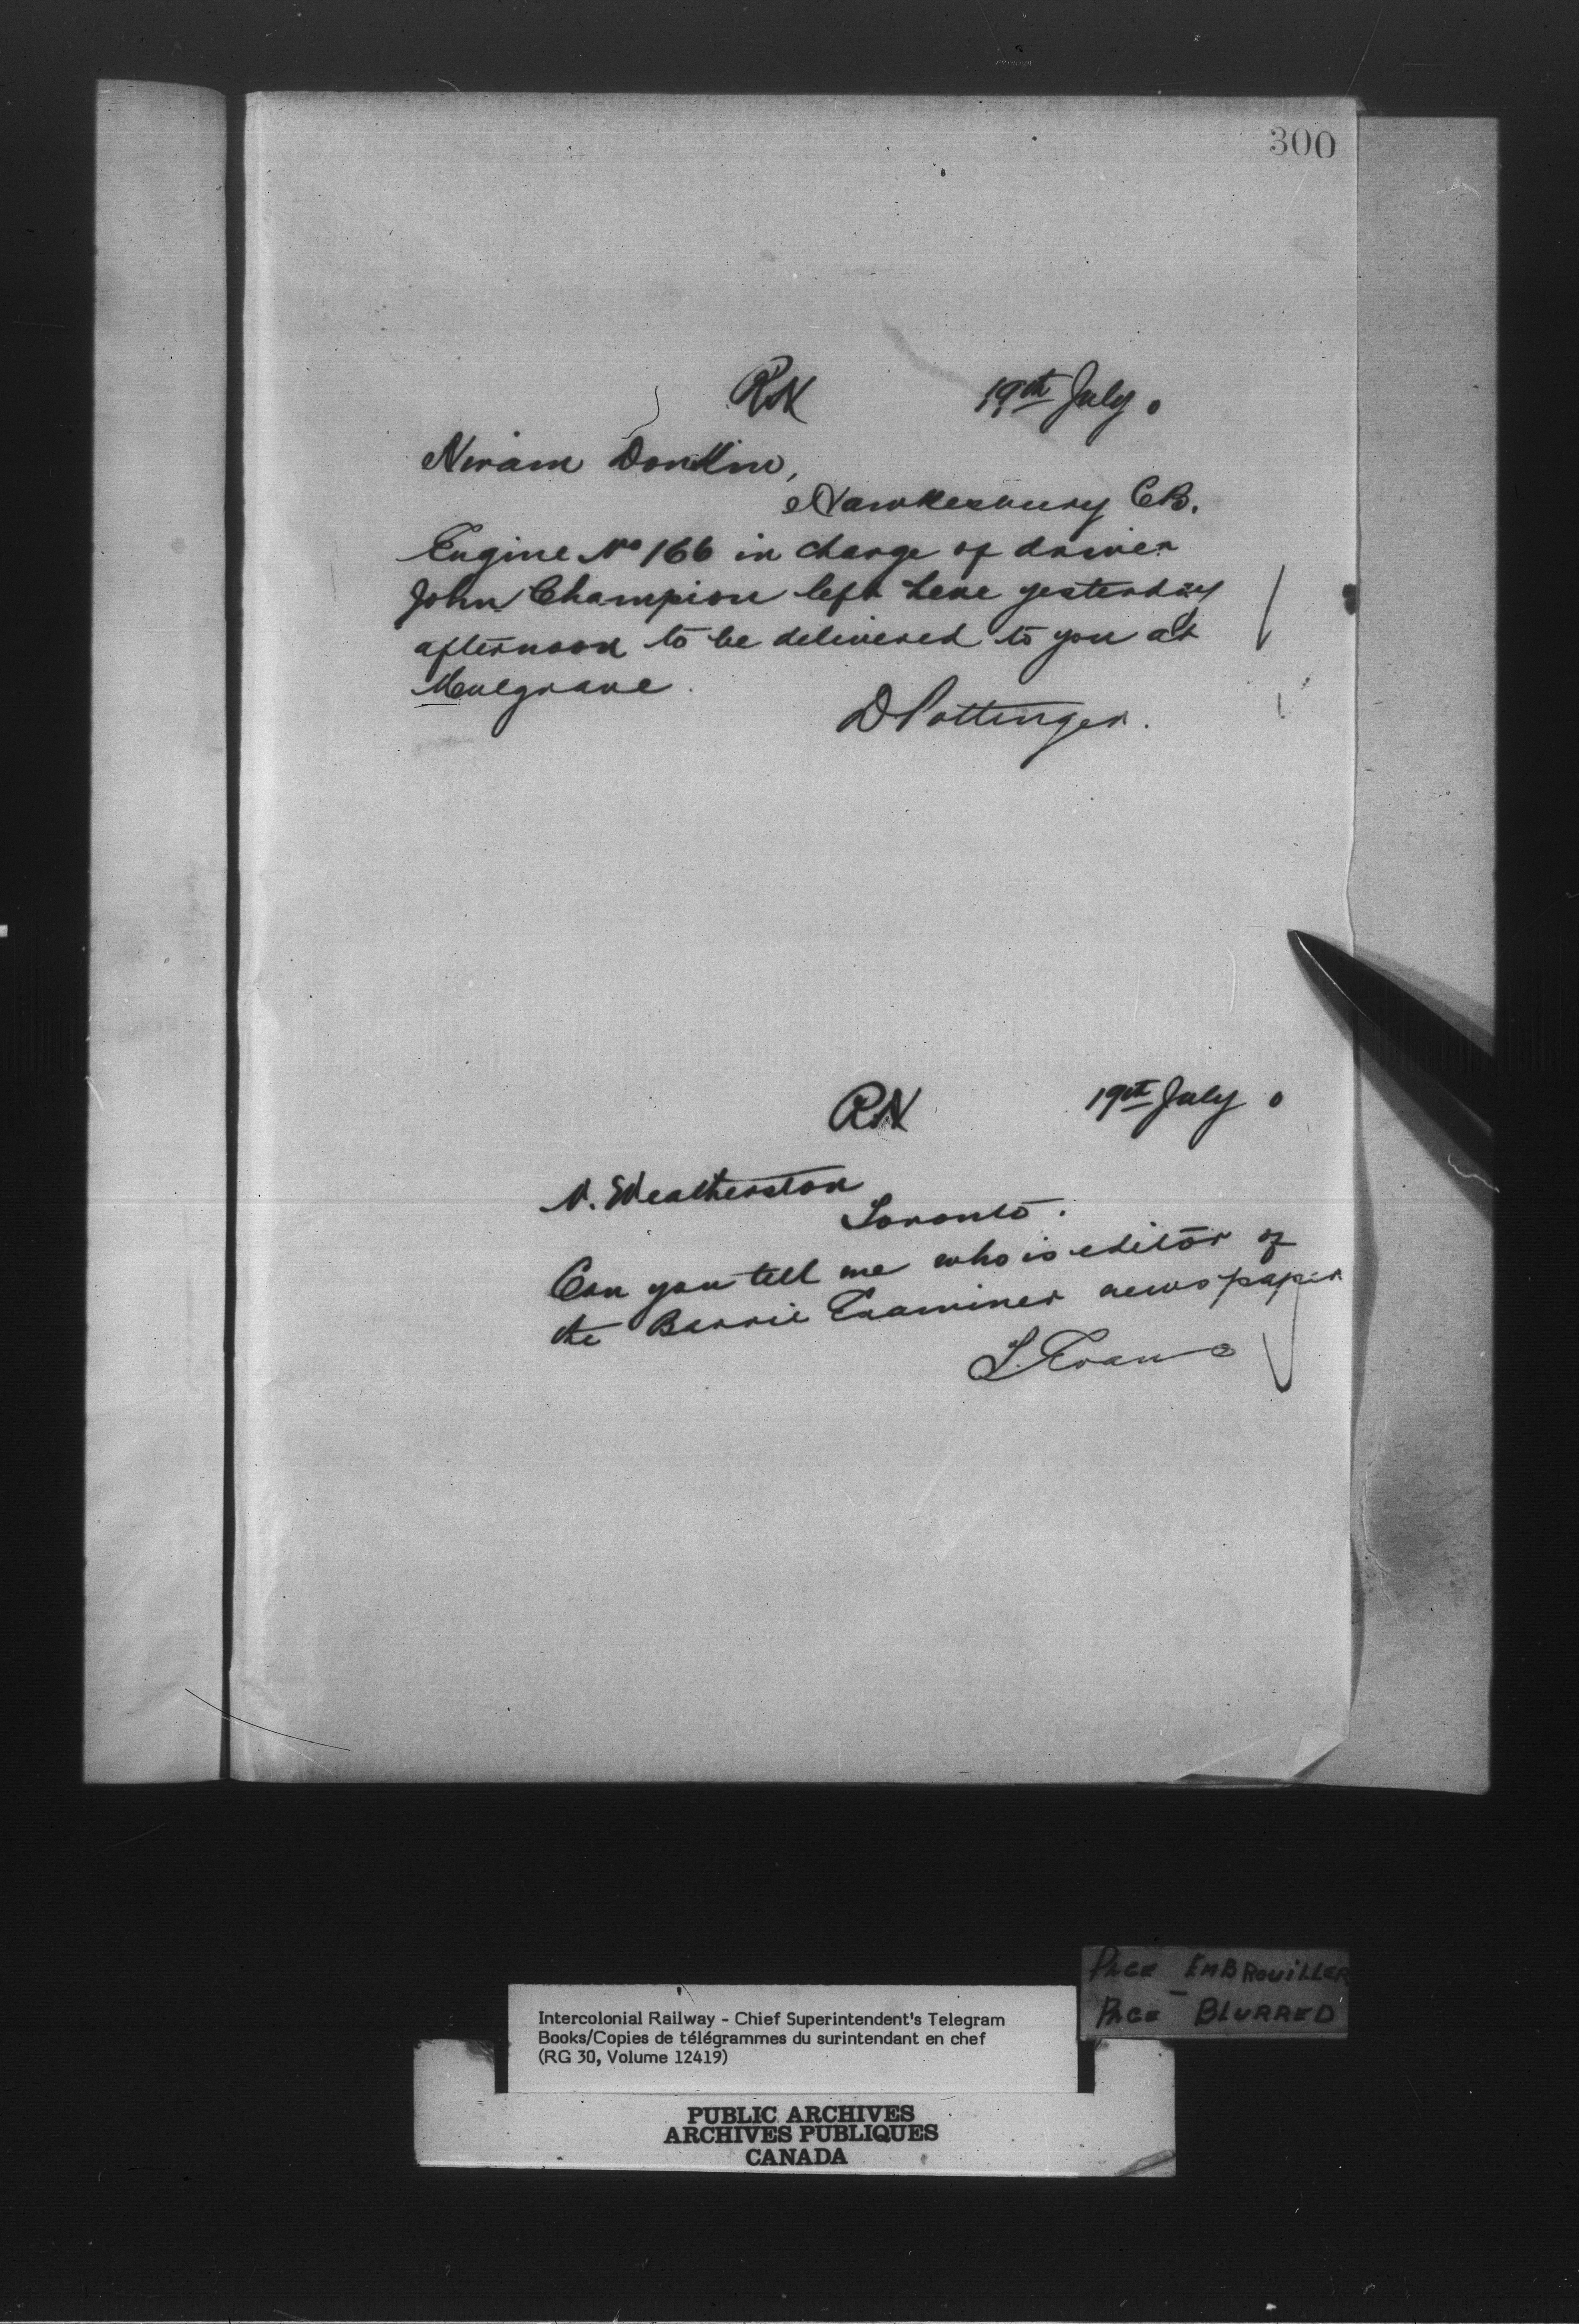 300
RN 19th July.
Hiram Donkin,
Hawkesbury CB.
Engine No 166 in charge of driver
John Champion left here yesterday
afternoon to be delivered to you at
Mulgrave.
D Pottinger.
RN 19th July
N. Weatherston
Toronto.
Can you tell me who is editor of
the Barrie Examiner newspaper
PAGE EMBROUILLER
PAGE BLURRED
Intercolonial Railway - Chief Superintendent's Telegram
Books/Copies de télégrammes du surintendant en chef
(RG 30, Volume 12419)
PUBLIC ARCHIVES
ARCHIVES PUBLIQUES
CANADA